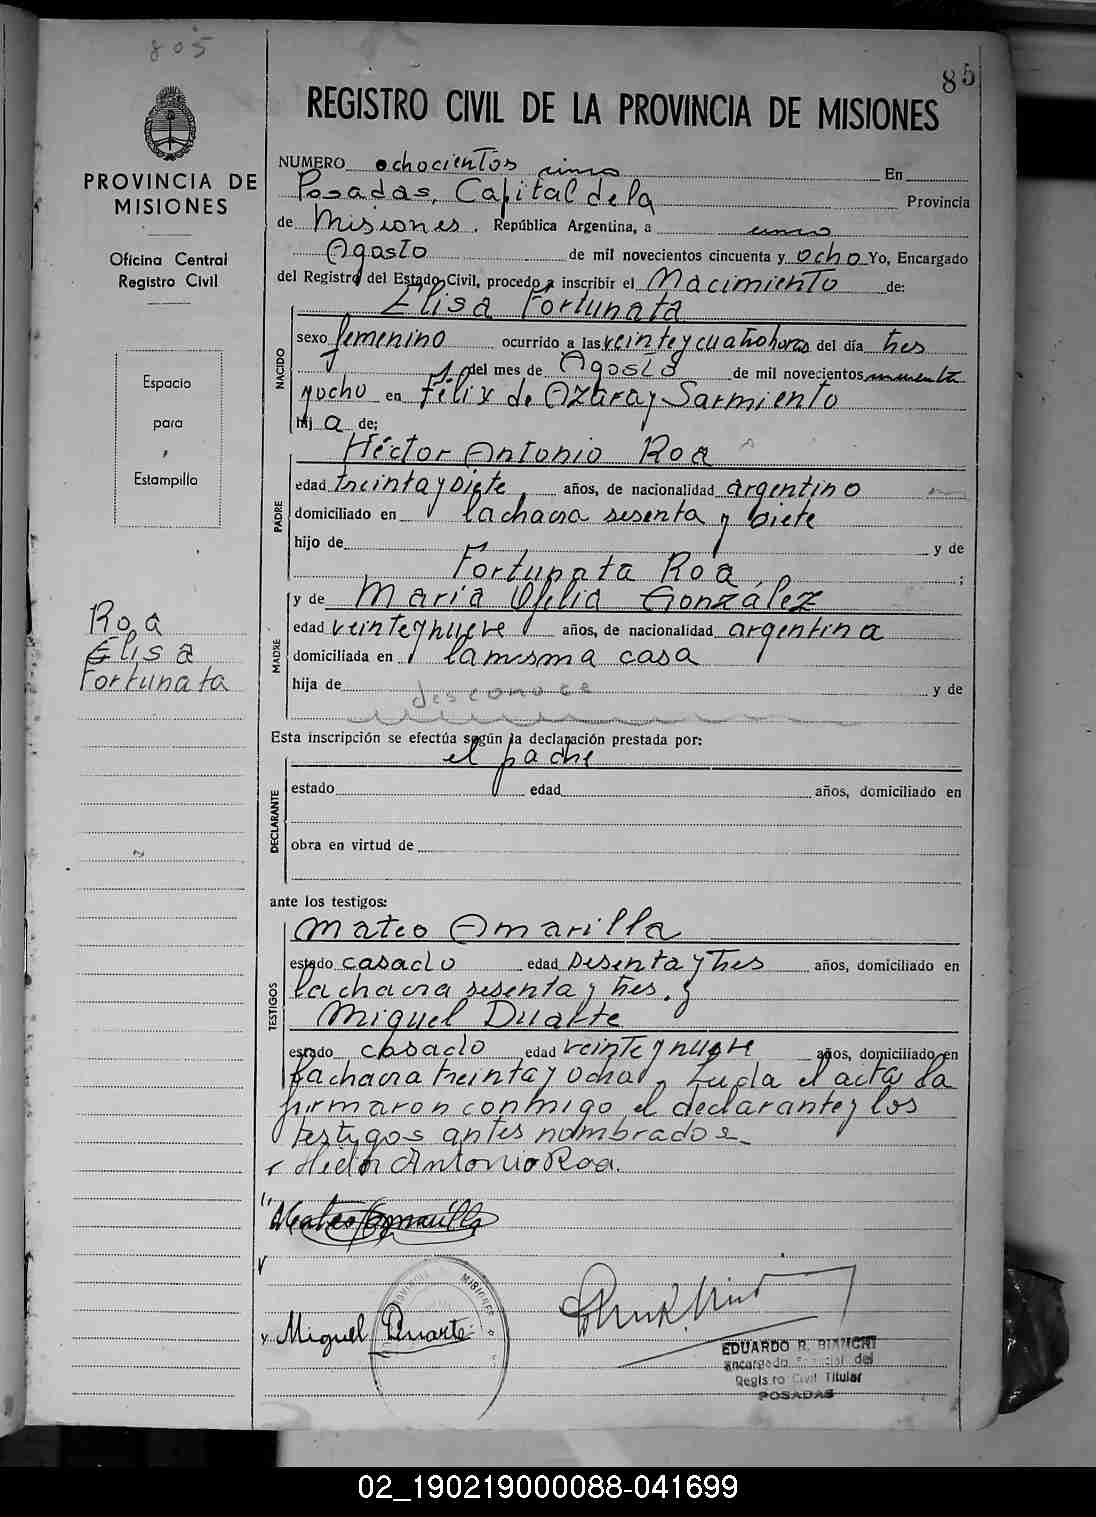 805
85
REGISTRO CIVIL DE LA PROVINCIA DE MISIONES
PROVINCIA DE
MISIONES
Oficina Central
Registro Civil
Espacio
para
Estampilla
Roa
Elisa
Fortunata
NUMERO ochocientos cinco En
Posadas, Capital de la Provincia
de Misiones. República Argentina, a cinco
Agosto de mil novecientos cincuenta y ocho Yo, Encargado
del Registro del Estado Civil, procedo a inscribir el Nacimiento de:
Elisa Fortunata
NACIDO
sexo femenino ocurrido a las veinte y cuatro horas del día tres
del mes de Agosto de mil novecientos cincuenta
y ocho en Félix de Azara y Sarmiento
hij a de:
Héctor Antonio Roa
PADRE
edad treinta y siete años, de nacionalidad argentino
domiciliado en la chacra sesenta y siete
hijo de y de
Fortunata Roa ;
MADRE
y de María Ofelia González
edad veinte y nueve años, de nacionalidad argentina
domiciliada en la misma casa
hija de desconoce y de
Esta inscripción se efectúa según la declaración prestada por:
el padre
DECLARANTE
estado edad años, domiciliado en
obra en virtud de
ante los testigos:
TESTIGOS
Mateo Amarilla
estado casado edad sesenta y tres años, domiciliado en
la chacra sesenta y tres. y
Miguel Duarte
estado casado edad veinte y nueve años, domiciliado en
la chacra treinta y ocho. Leida el acta la
firmaron conmigo el declarante y los
testigos antes nombrados
Hector Antonio Roa.
Mateo Amarilla
Miguel Duarte
PROVINCIA MISIONES
EDUARDO R. BIANCHI
Encargado del
Registro Civil Titular
POSADAS
02_190219000088-041699